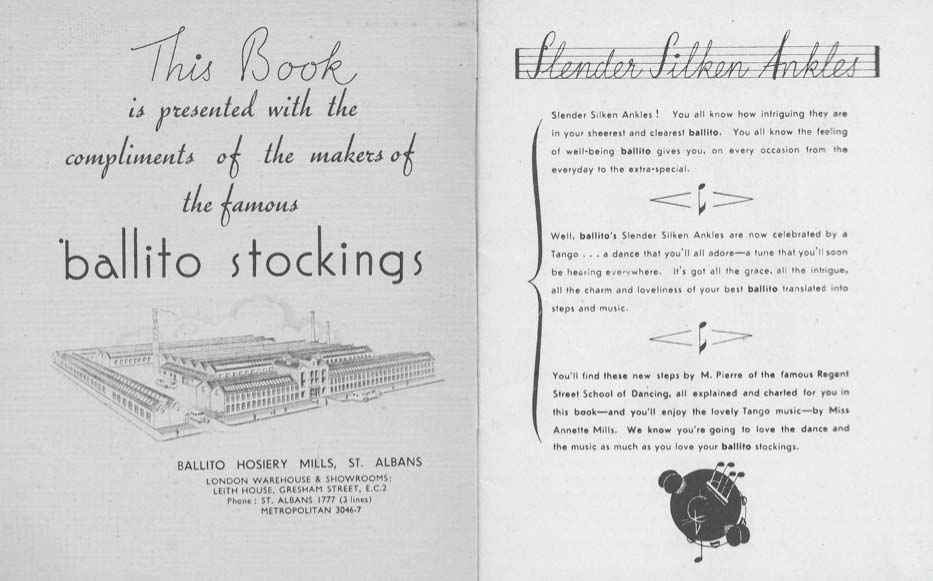 This Book
is presented with the
compliments of the makers of
the famous
ballito stockings
BALLITO HOSIERY MILLS, ST. ALBANS
LONDON WAREHOUSE & SHOWROOMS:
LEITH HOUSE, GRESHAM STREET, E.C.2
Phone : ST. ALBANS 1777 (3 lines)
METROPOLITAN 3046-7
Slender Silken Ankles
Slender Silken Ankles! You all know how intriguing they are
in your sheerest and clearest ballito. You all know the feeling
of well-being ballito gives you, on every occasion from the
everyday to the extra-special.
Well, ballito's Slender Silken Ankles are now celebrated by a
Tango . . . a dance that you'll all adore—a tune that you'll soon
be hearing everywhere. It's got all the grace, all the intrigue,
all the charm and loveliness of your best ballito translated into
steps and music.
You'll find these new steps by M. Pierre of the famous Regent
Street School of Dancing, all explained and charted for you in
this book—and you'll enjoy the lovely Tango music—by Miss
Annette Mills. We know you're going to love the dance and
the music as much as you love your ballito stockings.